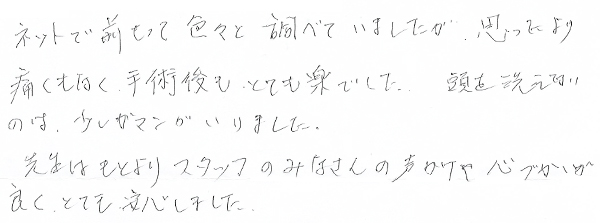 ネットで前もって色々と調べていましたが、思ったより
痛くもなく、手術後も、とても楽でした。 頭を洗えない
のは、少しガマンがいりました。
先生はもとよりスタッフのみなさんの声かけや心づかいが
良く、とても安心しました。